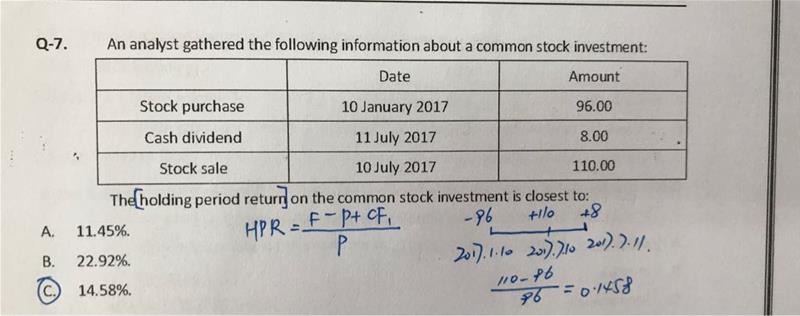 Q-7. An analyst gathered the following information about a common stock investment:
Date Amount
Stock purchase 10 January 2017 96.00
Cash dividend 11 July 2017 8.00
Stock sale 10 July 2017 110.00
The [holding period return] on the common stock investment is closest to:
A. 11.45%.
B. 22.92%.
C. 14.58%.
HPR = F - P + CF₁
P
-96 +110 +8
2017.1.10 2017.7.10 2017.7.11.
110-96
96
= 0.1458